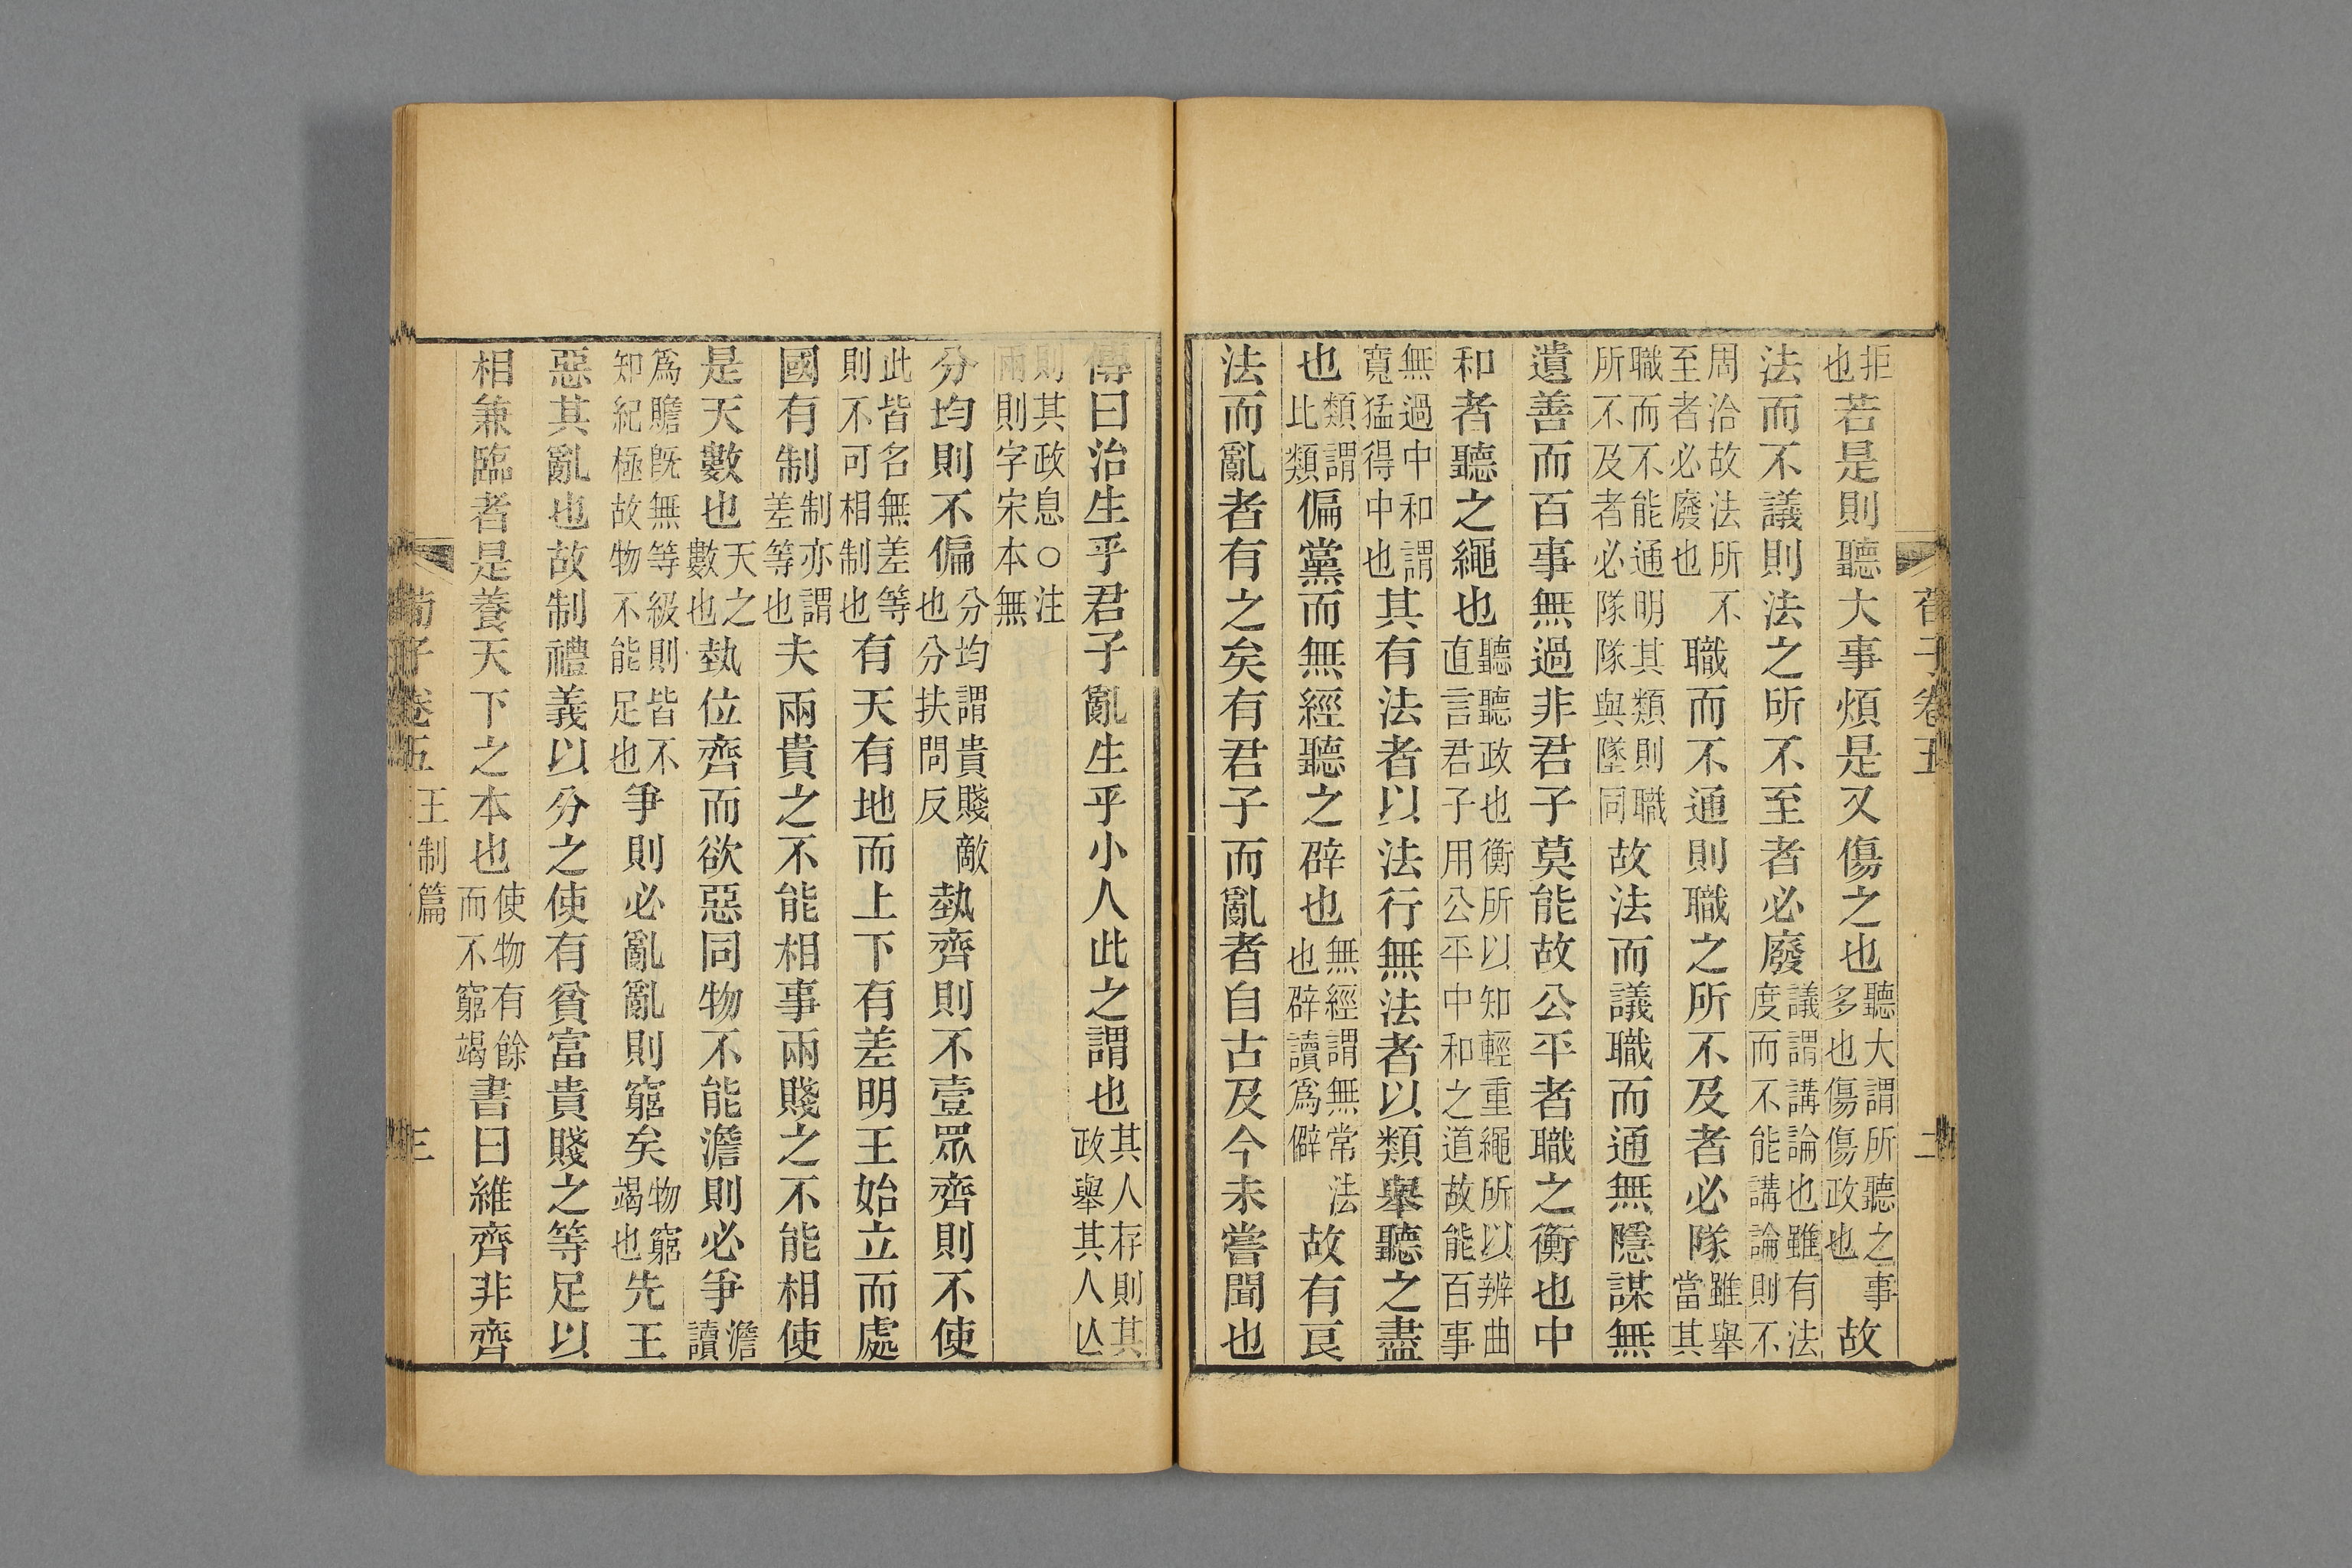 荀子卷五 二
拒也若是則聽大事煩是又傷之也聽大謂所聽之事多也傷傷政也故
法而不議則法之所不至者必廢議謂講論也雖有法度而不能講論則不
周洽故法所不至者必廢也職而不通則職之所不及者必隊雖舉當其
職而不能通明其類則職所不及者必隊隊與墜同故法而議職而通無隱謀無
遺善而百事無過非君子莫能故公平者職之衡也中
和者聽之繩也聽聽政也衡所以知輕重繩所以辨曲直言君子用公平中和之道故能百事
無過中和謂寬猛得中也其有法者以法行無法者以類舉聽之盡
也類謂比類偏黨而無經聽之辟也無經謂無常法也辟讀爲僻故有良
法而亂者有之矣有君子而亂者自古及今未嘗聞也
傳曰治生乎君子亂生乎小人此之謂也其人存則其政舉其人亾
則其政息○注兩則字宋本無
分均則不偏分均謂貴賤敵也分扶問反埶齊則不壹眾齊則不使
此皆名無差等則不可相制也有天有地而上下有差明王始立而處
國有制制亦謂差等也夫兩貴之不能相事兩賤之不能相使
是天數也天之數也埶位齊而欲惡同物不能澹則必爭澹讀
爲贍旣無等級則皆不知紀極故物不能足也爭則必亂亂則窮矣物窮竭也先王
惡其亂也故制禮義以分之使有貧富貴賤之等足以
相兼臨者是養天下之本也使物有餘而不窮竭書曰維齊非齊
荀子卷五 王制篇 三